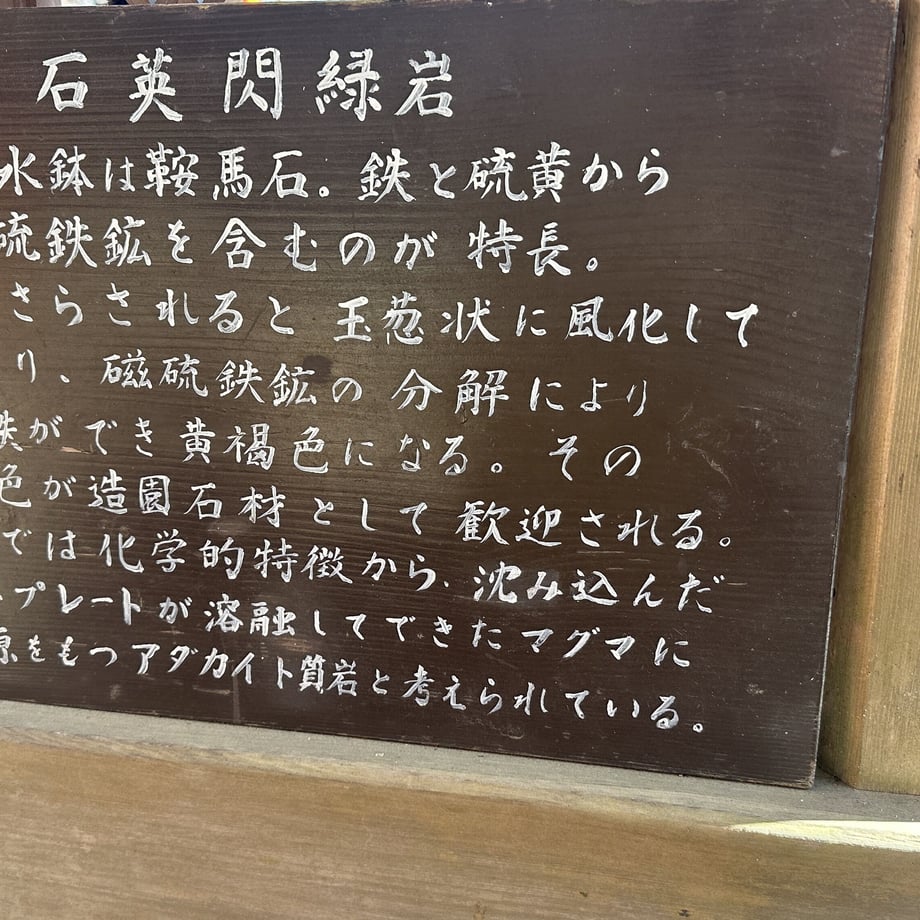 石英閃緑岩
水鉢は鞍馬石。鉄と硫黄から
硫鉄鉱を含むのが特長。
さらされると玉葱状に風化して
り、磁硫鉄鉱の分解により
鉄ができ黄褐色になる。その
色が造園石材として歓迎される。
では化学的特徴から、沈み込んだ
プレートが溶融してできたマグマに
源をもつアダカイト質岩と考えられている。